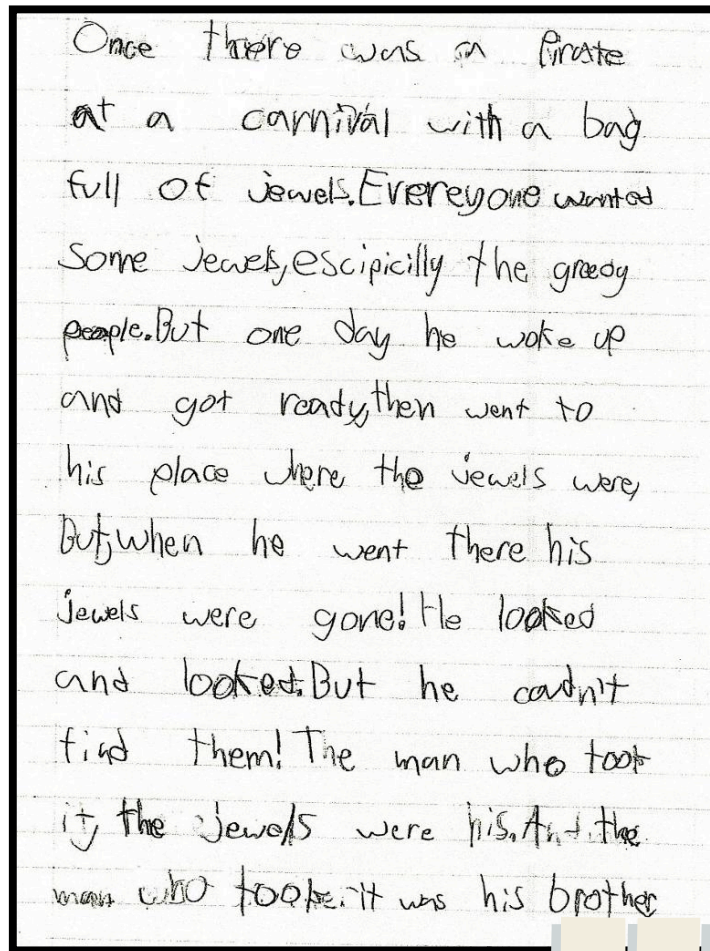 Once there was a Pirate
at a carnival with a bag
full of jewels. Evereyone wanted
some jewels, escipicilly the greedy
people. But one day he woke up
and got ready, then went to
his place where the jewels were,
But, when he went there his
jewels were gone! He looked
and looked. But he coudn't
find them! The man who took
it, the jewels were his. And the
man who took it was his brother